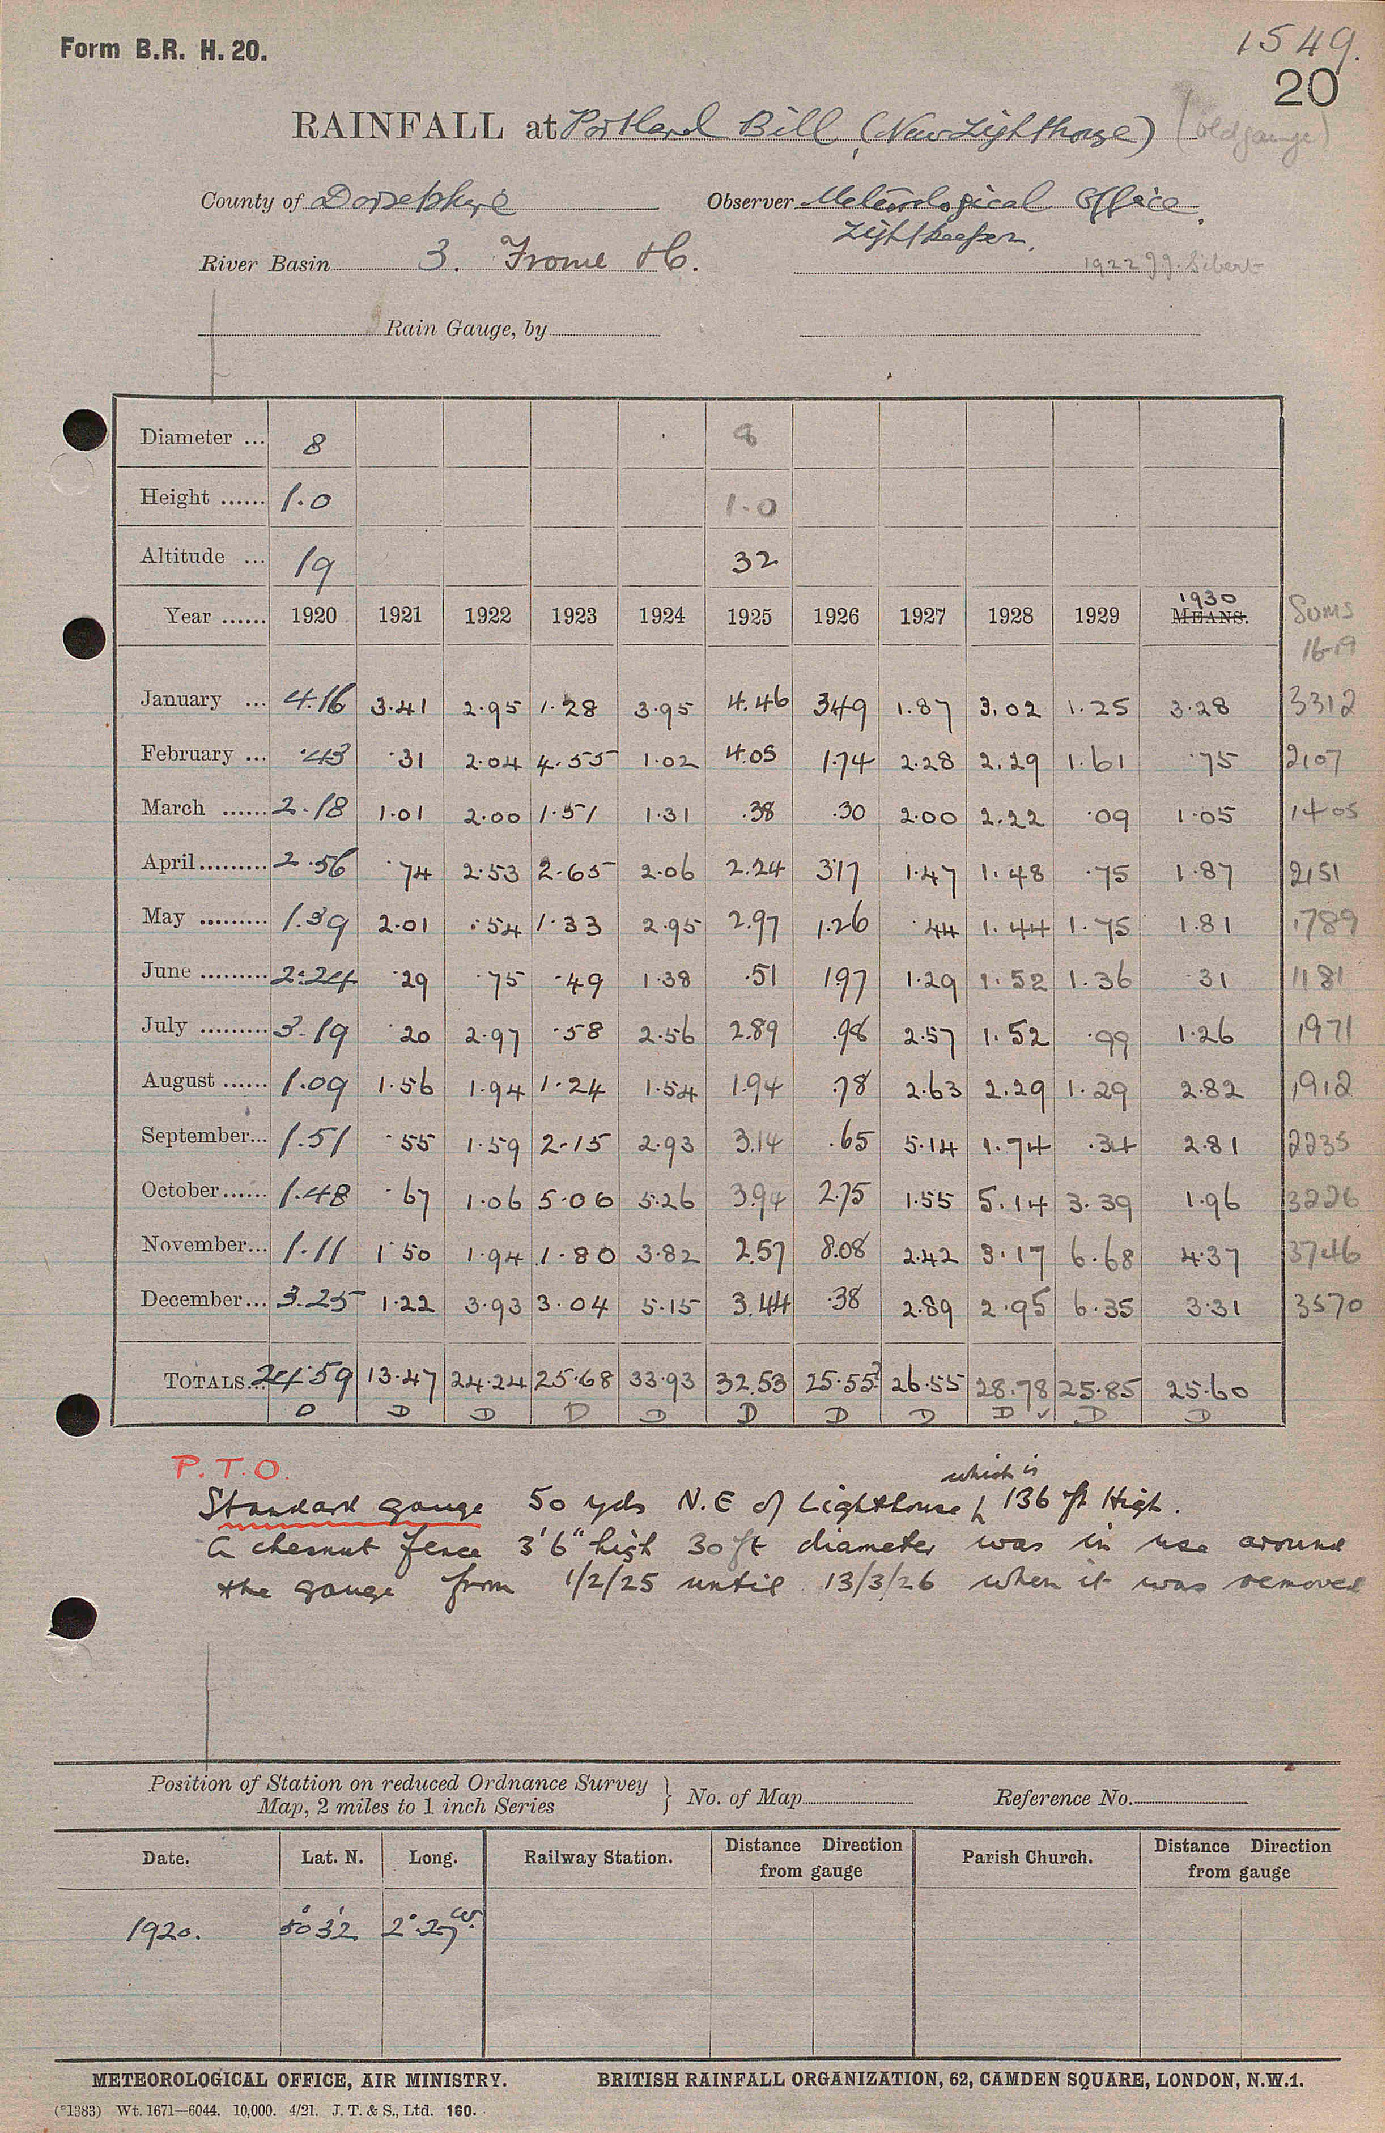 Form B.R. H. 20.
1549.
20
RAINFALL at Portland Bill (New Lighthouse) (old gauge)
County of Dorsetshire Observer Meteorological Office,
Lightkeeper.
River Basin 3. Frome &c. 1922 J.J. Sibert
Rain Gauge, by
Diameter ... 8 8
Height ...... 1.0 1.0
Altitude ... 19 32
1930 Sums
Year ...... 1920 1921 1922 1923 1924 1925 1926 1927 1928 1929 MEANS. 16-19
January ... 4.16 3.41 2.95 1.28 3.95 4.46 349 1.87 3.02 1.25 3.28 3312
February ... .43 .31 2.04 4.55 1.02 4.05 1.74 2.28 2.29 1.61 .75 2107
March ...... 2.18 1.01 2.00 1.51 1.31 .38 .30 2.00 2.22 .09 1.05 1405
April ......... 2.56 .74 2.53 2.65 2.06 2.24 317 1.47 1.48 .75 1.87 2151
May ......... 1.39 2.01 .54 1.33 2.95 2.97 1.26 .44 1.44 1.75 1.81 1789
June ......... 2.24 .29 .75 .49 1.38 .51 197 1.29 1.52 1.36 .31 1181
July ......... 3.19 .20 2.97 .58 2.56 2.89 .98 2.57 1.52 .99 1.26 1971
August ...... 1.09 1.56 1.94 1.24 1.54 1.94 .78 2.63 2.29 1.29 2.82 1912
September... 1.51 .55 1.59 2.15 2.93 3.14 .65 5.14 1.74 .34 2.81 2235
October...... 1.48 .67 1.06 5.06 5.26 3.94 2.75 1.55 5.14 3.39 1.96 3226
November... 1.11 1.50 1.94 1.80 3.82 2.57 8.08 2.42 3.17 6.68 4.37 3746
December... 3.25 1.22 3.93 3.04 5.15 3.44 .38 2.89 2.95 6.35 3.31 3570
TOTALS... 24.59 13.47 24.24 25.68 33.93 32.53 25.55? 26.55 28.78 25.85 25.60
D D D D D D D D D ✓ D D
P.T.O.
which is
Standard gauge 50 yds N.E of Lighthouse 136 ft High.
A chesnut fence 3'6" high 30 ft diameter was in use around
the gauge from 1/2/25 until 13/3/26 when it was removed
Position of Station on reduced Ordnance Survey
Map, 2 miles to 1 inch Series } No. of Map Reference No.
Date. Lat. N. Long. Railway Station. Distance Direction from gauge Parish Church. Distance Direction from gauge
1920. 50° 32' 2° 27' W.
METEOROLOGICAL OFFICE, AIR MINISTRY. BRITISH RAINFALL ORGANIZATION, 62, CAMDEN SQUARE, LONDON, N.W.1.
(*1383) Wt. 1671—6044. 10,000. 4/21. J. T. & S., Ltd. 160.